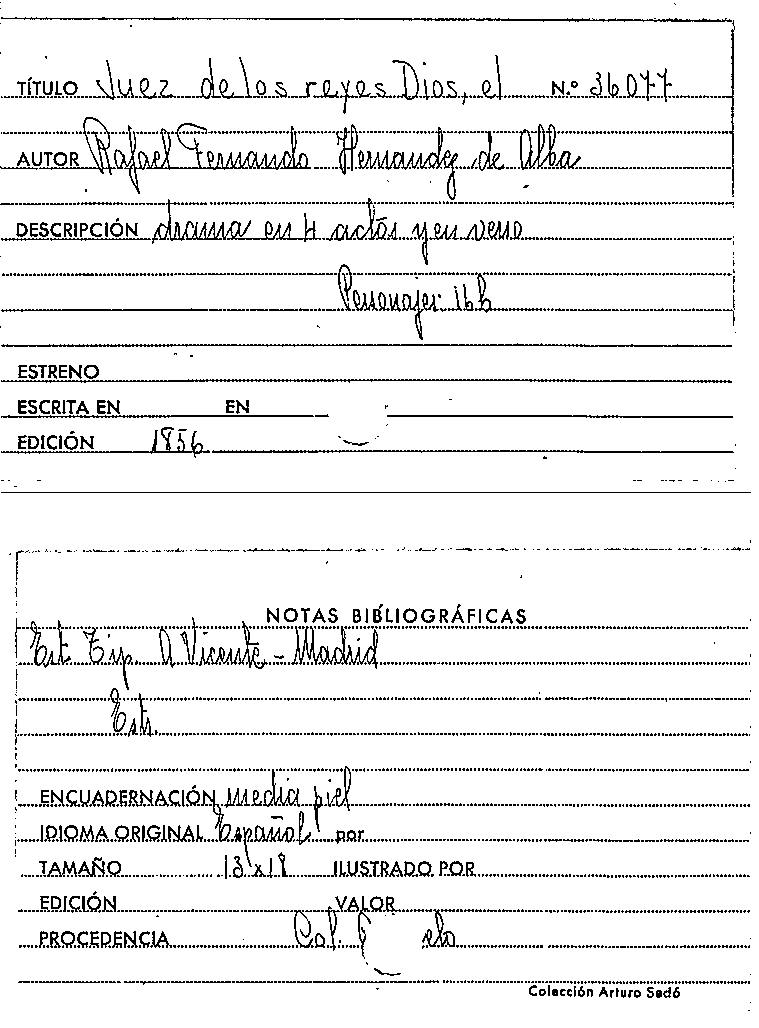 TÍTULO Juez de los reyes Dios, el N.º 36077
AUTOR Rafael Fernando Hernandez de Alba
DESCRIPCIÓN drama en 4 actos y en verso
Personajes: 16 h
ESTRENO
ESCRITA EN EN
EDICIÓN 1856
NOTAS BIBLIOGRÁFICAS
Est. Tip. A Vicente - Madrid
Estr.
ENCUADERNACIÓN media piel
IDIOMA ORIGINAL Español por
TAMAÑO 13 x 18 ILUSTRADO POR
EDICIÓN VALOR
PROCEDENCIA Col.
Colección Arturo Sedó